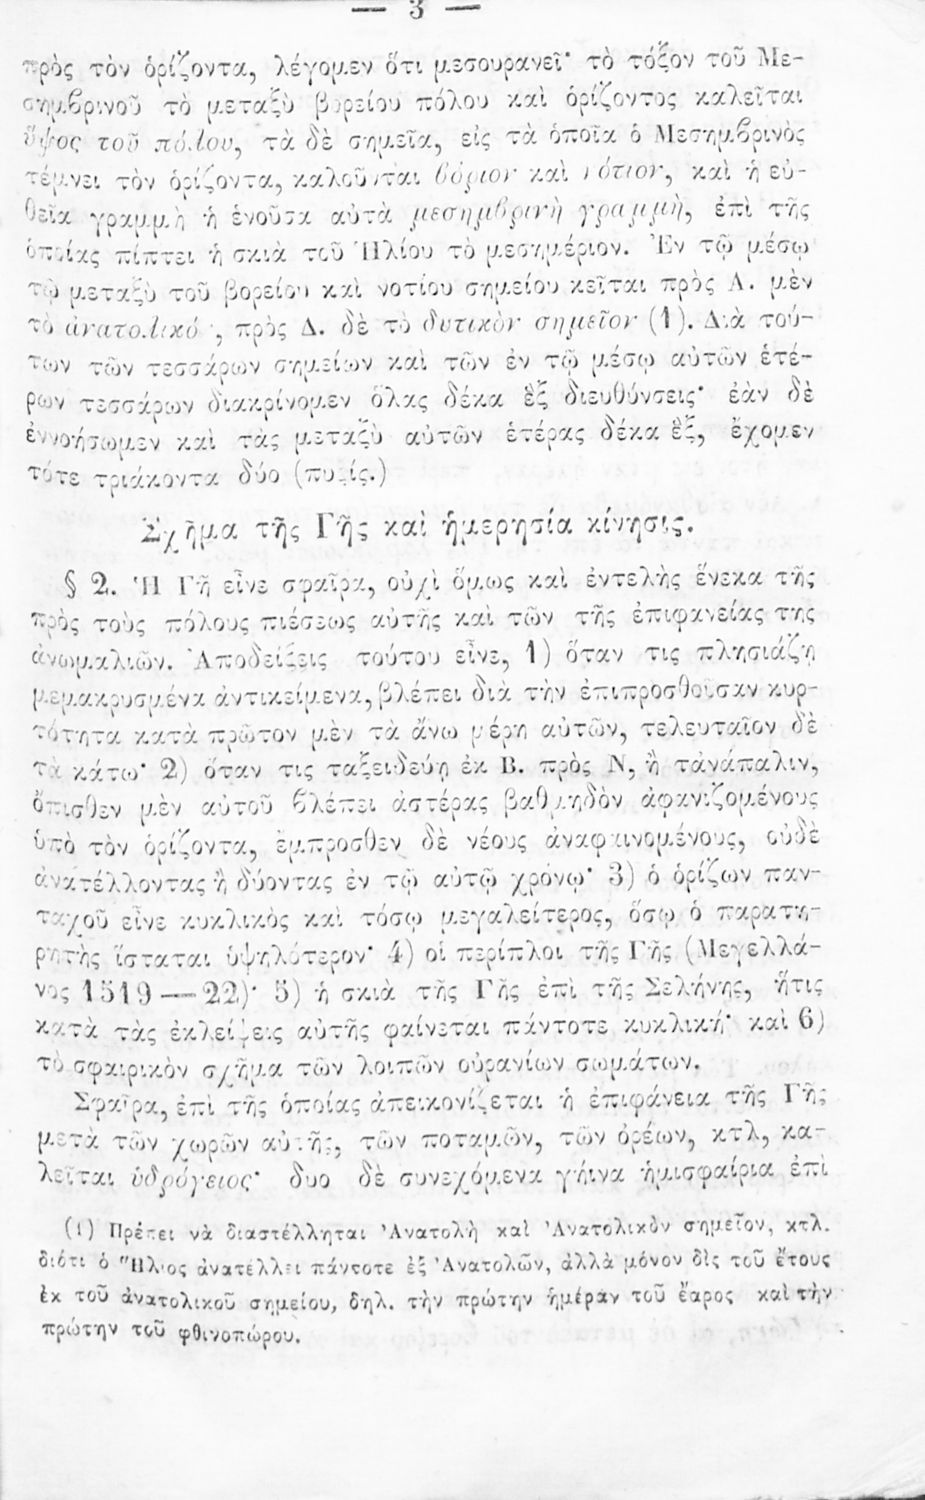 — 3 —
πρὸς τὸν ὁρίζοντα, λέγομεν ὅτι μεσουρανεῖ· τὸ τόξον τοῦ Με-
σημβρινοῦ τὸ μεταξὺ βορείου πόλου καὶ ὁρίζοντος καλεῖται
ὕψος τοῦ πόλου, τὰ δὲ σημεῖα, εἰς τὰ ὁποῖα ὁ Μεσημβρινὸς
τέμνει τὸν ὁρίζοντα, καλοῦνται βόριον καὶ νότιον, καὶ ἡ εὐ-
θεῖα γραμμὴ ἡ ἑνοῦσα αὐτὰ μεσημβρινὴ γραμμὴ, ἐπὶ τῆς
ὁποίας πίπτει ἡ σκιὰ τοῦ Ἡλίου τὸ μεσημέριον. Ἐν τῷ μέσῳ
τῷ μεταξὺ τοῦ βορείου καὶ νοτίου σημείου κεῖται πρὸς Α. μὲν
τὸ ἀνατολικὸν, πρὸς Δ. δὲ τὸ δυτικὸν σημεῖον (1). Διὰ τού-
των τῶν τεσσάρων σημείων καὶ τῶν ἐν τῷ μέσῳ αὐτῶν ἑτέ-
ρων τεσσάρων διακρίνομεν ὅλας δέκα ἓξ διευθύνσεις· ἐὰν δὲ
ἐννοήσωμεν καὶ τὰς μεταξὺ αὐτῶν ἑτέρας δέκα ἓξ, ἔχομεν
τότε τριάκοντα δύο (πυξίς.)
Σχῆμα τῆς Γῆς καὶ ἡμερησία κίνησις.
§ 2. Ἡ Γῆ εἶνε σφαῖρα, οὐχὶ ὅμως καὶ ἐντελὴς ἕνεκα τῆς
πρὸς τοὺς πόλους πιέσεως αὐτῆς καὶ τῶν τῆς ἐπιφανείας της
ἀνωμαλιῶν. Ἀποδείξεις τούτου εἶνε, 1) ὅταν τις πλησιάζῃ
μεμακρυσμένα ἀντικείμενα, βλέπει διὰ τὴν ἐπιπροσθοῦσαν κυρ-
τότητα κατὰ πρῶτον μὲν τὰ ἄνω μέρη αὐτῶν, τελευταῖον δὲ
τὰ κάτω· 2) ὅταν τις ταξειδεύῃ ἐκ Β. πρὸς Ν, ἢ τἀνάπαλιν,
ὄπισθεν μὲν αὐτοῦ βλέπει ἀστέρας βαθμηδὸν ἀφανιζομένους
ὑπὸ τὸν ὁρίζοντα, ἔμπροσθεν δὲ νέους ἀναφαινομένους, οὐδὲ
ἀνατέλλοντας ἢ δύοντας ἐν τῷ αὐτῷ χρόνῳ· 3) ὁ ὁρίζων παν-
ταχοῦ εἶνε κυκλικὸς καὶ τόσῳ μεγαλείτερος, ὅσῳ ὁ παρατη-
ρητὴς ἵσταται ὑψηλότερον· 4) οἱ περίπλοι τῆς Γῆς (Μεγελλά-
νος 1519—22)· 5) ἡ σκιὰ τῆς Γῆς ἐπὶ τῆς Σελήνης, ἥτις
κατὰ τὰς ἐκλείψεις αὐτῆς φαίνεται πάντοτε κυκλική· καὶ 6)
τὸ σφαιρικὸν σχῆμα τῶν λοιπῶν οὐρανίων σωμάτων.
Σφαῖρα, ἐπὶ τῆς ὁποίας ἀπεικονίζεται ἡ ἐπιφάνεια τῆς Γῆς
μετὰ τῶν χωρῶν αὐτῆς, τῶν ποταμῶν, τῶν ὀρέων, κτλ, κα-
λεῖται ὑδρόγειος· δυο δὲ συνεχόμενα γήινα ἡμισφαίρια ἐπὶ
(1) Πρέπει νὰ διαστέλληται Ἀνατολὴ καὶ Ἀνατολικὸν σημεῖον, κτλ.
διότι ὁ Ἥλιος ἀνατέλλει πάντοτε ἐξ Ἀνατολῶν, ἀλλὰ μόνον δὶς τοῦ ἔτους
ἐκ τοῦ ἀνατολικοῦ σημείου, δηλ. τὴν πρώτην ἡμέραν τοῦ ἔαρος καὶ τὴν
πρώτην τοῦ φθινοπώρου.